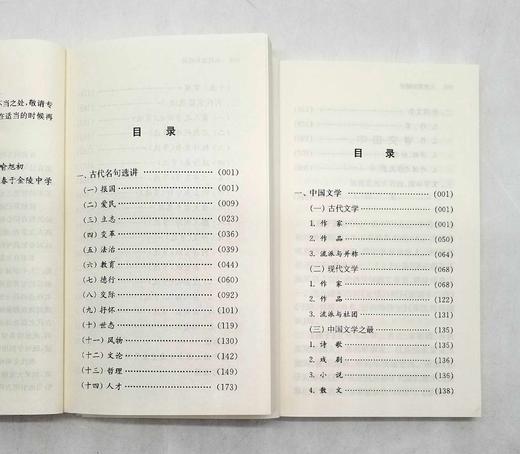 不当之处,敬请专
在适当的时候再
喻旭初
春于金陵中学
目 录
一、古代名句选讲 (001)
(一)报国 (001)
(二)爱民 (009)
(三)立志 (023)
(四)变革 (036)
(五)法治 (039)
(六)教育 (044)
(七)德行 (060)
(八)交际 (092)
(九)抒怀 (101)
(十)世态 (119)
(十一)风物 (130)
(十二)文论 (142)
(十三)哲理 (149)
(十四)人才 (173)
目 录
一、中国文学 (001)
(一)古代文学 (001)
1. 作 家 (001)
2. 作 品 (050)
3. 流派与并称 (064)
(二)现代文学 (068)
1. 作 家 (068)
2. 作 品 (122)
3. 流派与社团 (131)
(三)中国文学之最 (135)
1. 诗 歌 (135)
2. 戏 剧 (136)
3. 小 说 (136)
4. 散 文 (138)